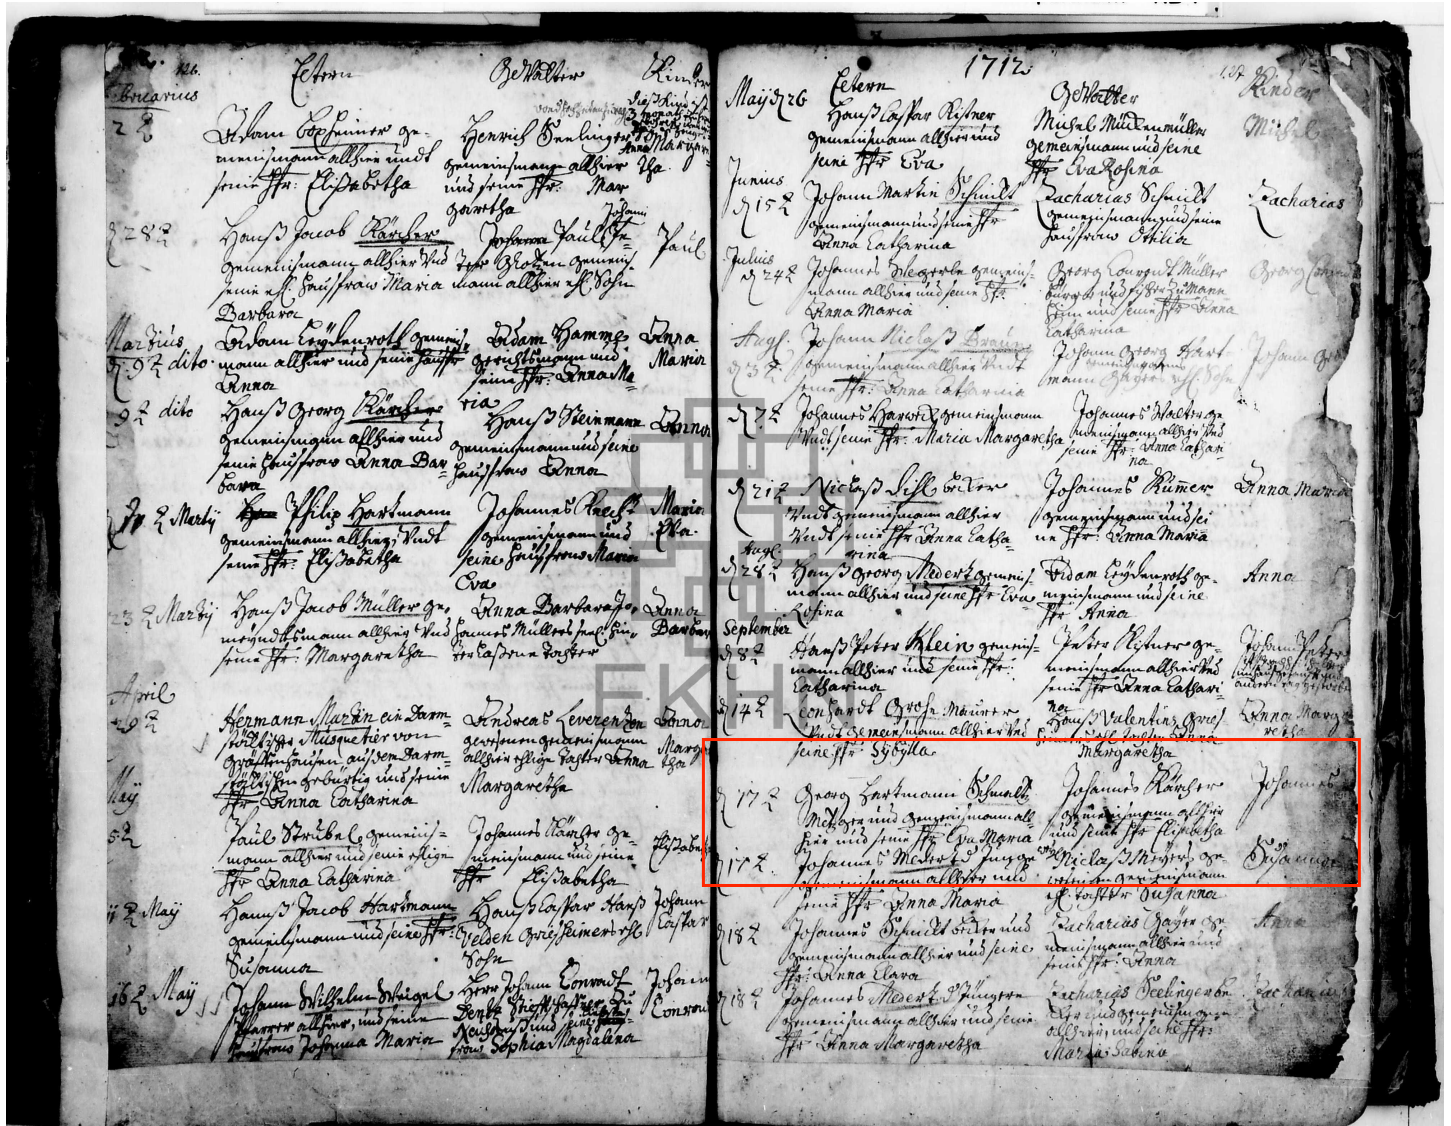 126.
Eltern
GeVatter
Kinder
bruarius
2
Adam boxheimer ge-
meinsmann allhier undt
seine ffr: Elisabetha
Henrich Seelinger
gemeinsmann allhier
und seine ffr: Mar
garetha
Anna Margare-
tha
28
Hanß Jacob Kärcher
gemeinsmann allhier Und
seine ehl: haußfraw Maria
Barbara
Johann
Paul
mann allhier ehl. Sohn
Paul
Martius
d. 9 dito
Adam Leÿdenroth gemeins-
mann allhier und seine haußfr
Anna
Adam Hamm
gerichtsmann und
seine ffr: Anna Ma-
ria
Anna
Maria
9 dito
Hanß Georg Kärcher
gemeinsmann allhier und
seine haußfraw Anna Bar
bara
Hanß Steinmann
gemeinsmann und seine
haußfraw Anna
Anna
Martÿ
Philip Hartmann
gemeinsmann allhier Undt
seine ffr: Elisabetha
Johannes Knecht
gemeinsmann und
seine haußfraw Maria
Eva
Maria
Eva
23 Martÿ
Hanß Jacob Müller ge-
meyndtsmann allhier Und
seine ffr: Margaretha
Anna Barbara Jo-
hannes Müllers seel. hin-
terlaßene Tochter
Anna
Barbar
April
29
Hermann Martin ein Darm-
stätischer Musquetier von
Gräffenhausen außem Darm-
stättischen gebürtig und seine
ffr: Anna Catharina
Andreas
gewesenen gemeinsmann
allhier ehlige Tochter Anna
Margaretha
Anna
Marga
tha
May
5
Paul Strubel gemeins-
mann allhier und seine ehlige
ffr Anna Catharina
Johannes Kärcher ge-
meinsmann und seine
ffr Elisabetha
Elisabeth
May
Hanß Jacob Hartmann
gemeinsmann und seine ffr:
Susanna
Hanß Caspar Hanß
Velden Griesheimers ehl
Sohn
Johann
Caspar
16 May
Johann Wilhelm Weigel
Pfarrer allhier, und seine
haußfraw Johanna Maria
Herr Johann Conradt
Neuhauß und seine
fraw Sophia Magdalena
Johann
Conrad
1712.
127
Eltern
GeVatter
Kinder
May d 26
Hanß Caspar Kistner
gemeinsmann allhier und
seine ffr Eva
Michel Muckenmüller
gemeinsmann und seine
ffr Eva Rosina
Michel
Junius
d 15
Johann Martin Schmidt
gemeinsmann und seine ffr
Anna Catharina
Zacharias Schmidt
gemeinsmann und seine
haußfraw Ottilia
Zacharias
Julius
d 24
Johannes Megerle gemeins-
mann allhier und seine ffr.
Anna Maria
Georg Conradt Müller
burger und fischer zu Mann
heim und seine ffr Anna
Catharina
Georg Conrad
Augl.
d 3
Johann Niclaß Braun
gemeinsmann allhier Undt
seine ffr: Anna Catharina
Johann Georg Hart-
mann
Johann Geo
d 7
Johannes Harweck gemeinsmann
Undt seine ffr: Maria Margaretha
Johannes Walter ge
meinsmann allhier Und
seine ffr: Anna Cathari
na
d 21
Niclaß Dihl becker
Undt gemeinsmann allhier
Undt seine ffr Anna Catha-
rina
Johannes Kumer
gemeinsmann und sei
ne ffr: Anna Maria
Anna Maria
Augl.
d 28
Hanß Georg Medert gemeins-
mann allhier und seine ffr Eva
Rosina
Adam Leÿdenroth ge-
meinsmann und seine
ffr Anna
Anna
September
d 8
Hanß Peter Klein gemeins-
mann allhier und seine ffr:
Catharina
Peter Kistner ge-
meinsmann allhier Und
seine ffr Anna Cathari-
na
Johann Peter
d 14
Leonhardt Große Maurer
Undt gemeinsmann allhier Und
seine ffr Sybilla
Hanß Valentin Gries-
Anna
Margaretha
Anna Marga
retha
d 17
Georg Hartmann Schmaltz
Metzger und gemeinsmann all-
hier und seine ffr Eva Maria
Johannes Kärcher
gemeinsmann allhier
und seine ffr Elisabetha
Johannes
d 17
Johannes Medert d Junge
gemeinsmann allhier und
seine ffr Anna Maria
Niclaß Meÿers ge-
wesenen gemeinsmann
ehl. tochter Susanna
Susanna
d 18
Johannes Schmidt becker und
gemeinsmann allhier und seine
ffr: Anna Clara
Zacharias Gayer ge-
meinsmann allhier und
seine ffr: Anna
Anna
d 18
Johannes Medert d Jüngere
gemeinsmann allhier und seine
ffr Anna Margaretha
Zacharias Seelinger be
cker und gemeinsmann
allhier und seine ffr:
Maria Sabina
Zacharias
EKHN